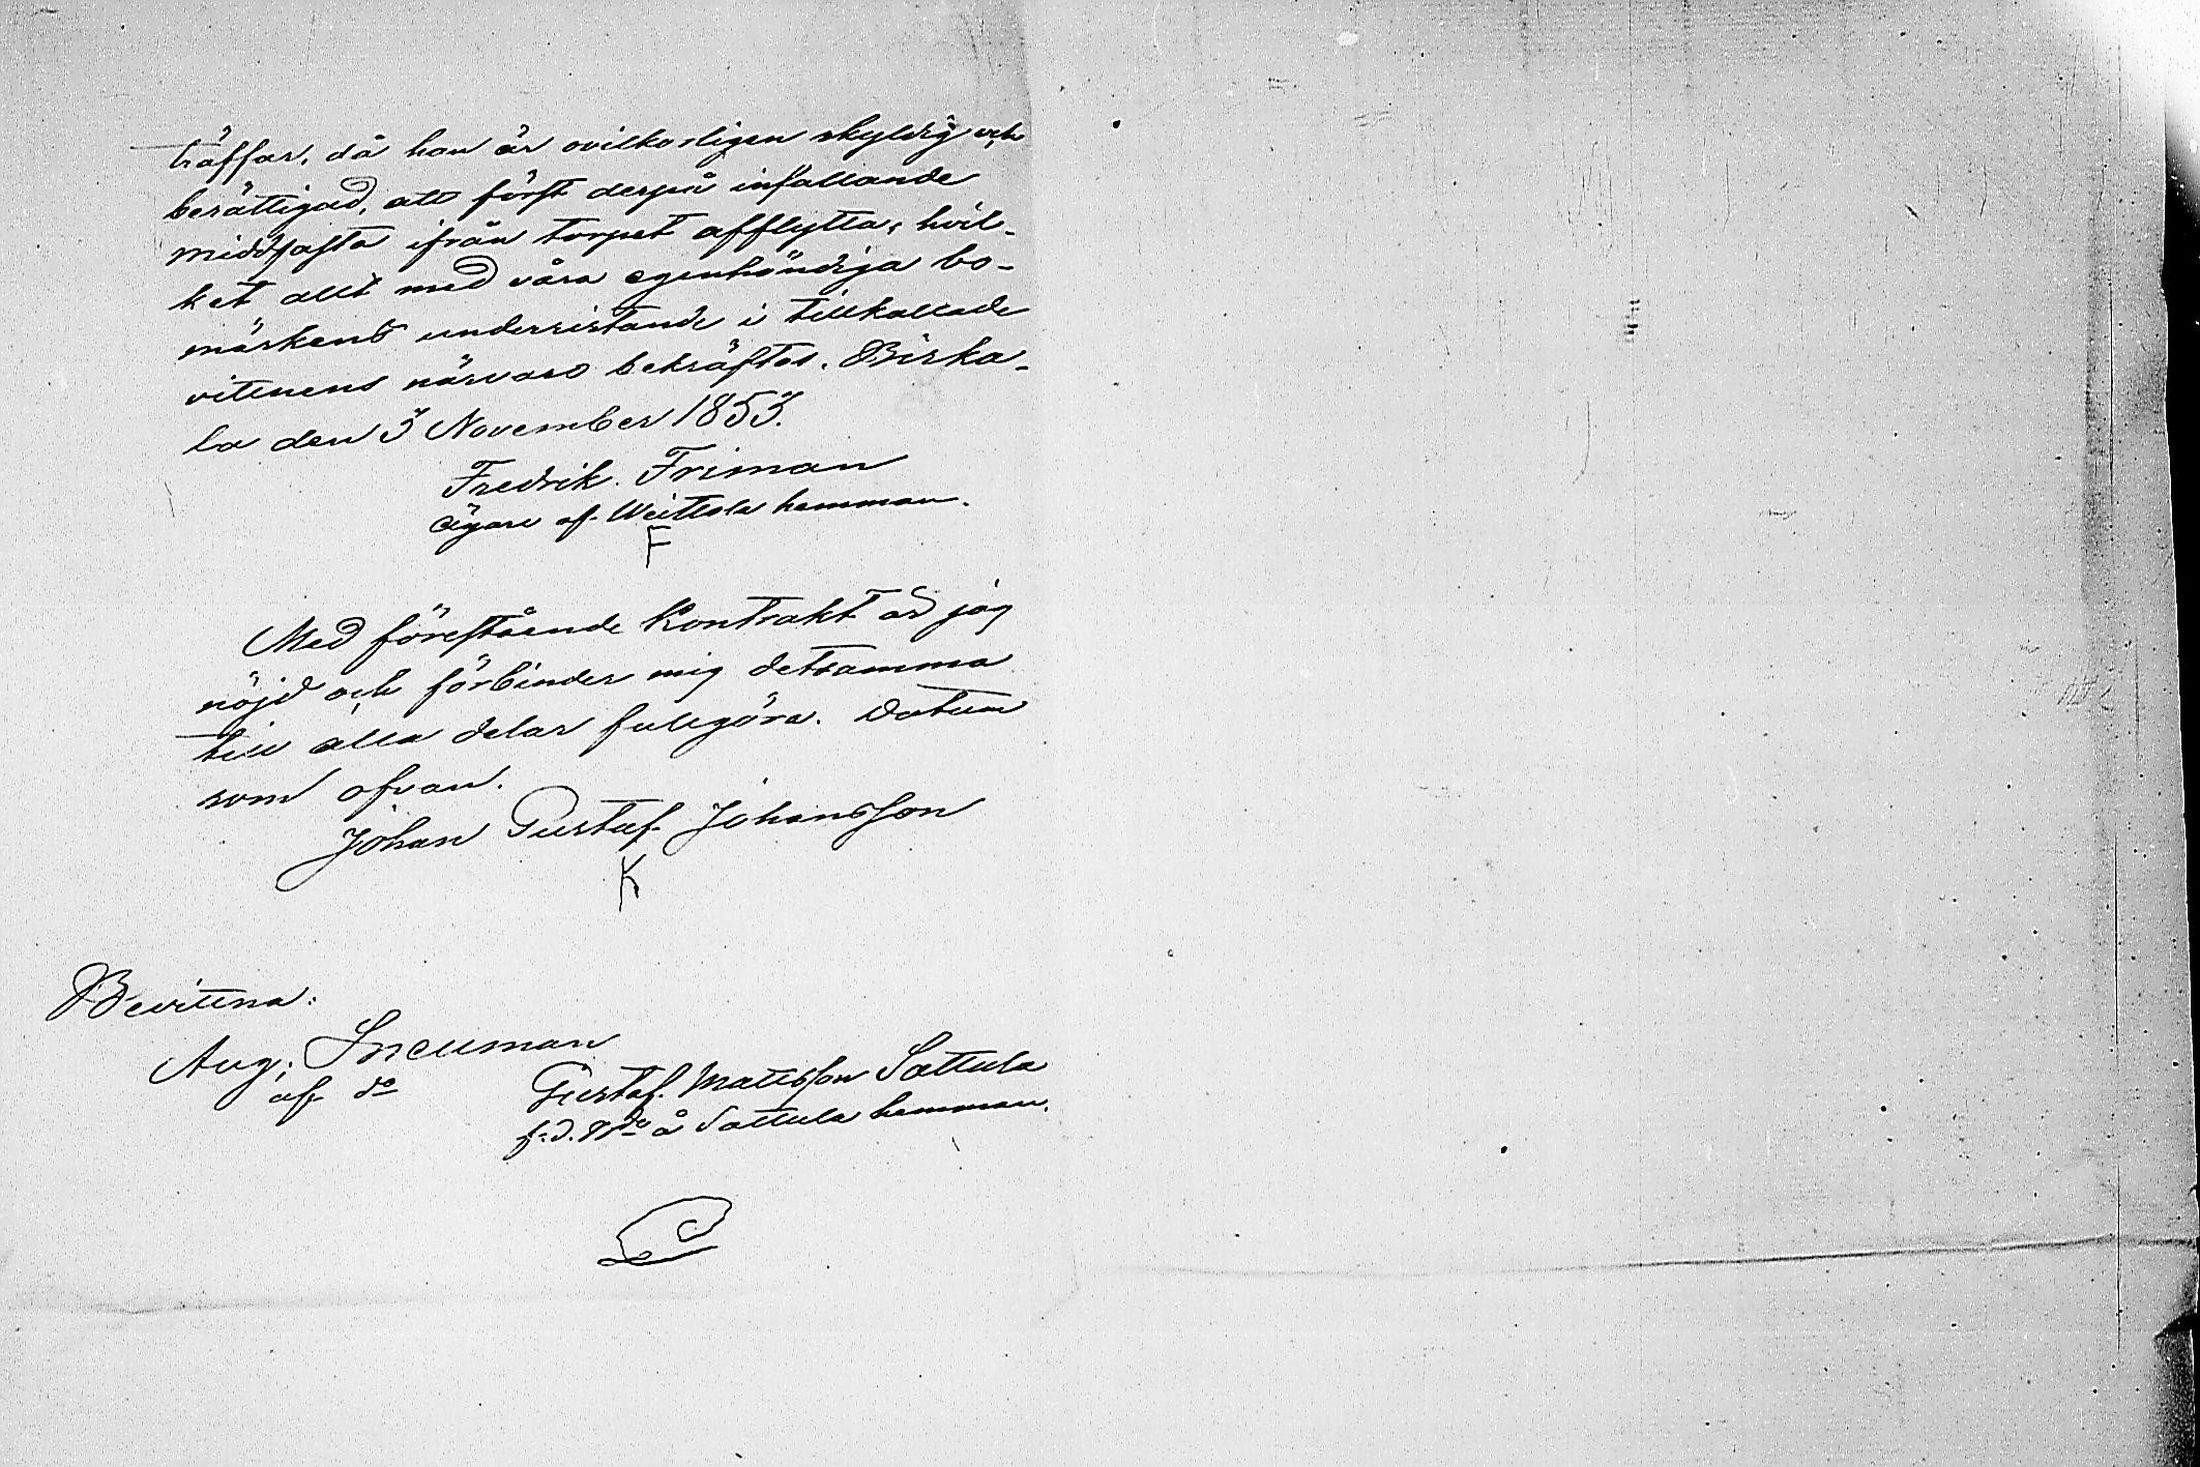 träffar, då han är ovilkorligen skyldig och
berättigad, att först derpå infallande
midfasta ifrån torpet afflytta; hvil-
ket allt med våra egenhändiga bo-
märkens undersistande i tillkallade
vitenens närvaro bekräftas. Birka-
la den 3 November 1853.
Fredrik Friman
ägare af Weittola hemman.
F
Med förestående Kontrakt är jag
nöjd och förbinder mig detsamma
till alla delar fullgöra. Datum
som ofvan.
Johan Gustaf Johansson
K
Bevittna:
Aug:
af do
Gustaf Mattsson Sattula
f.d. å Sattula hemman.